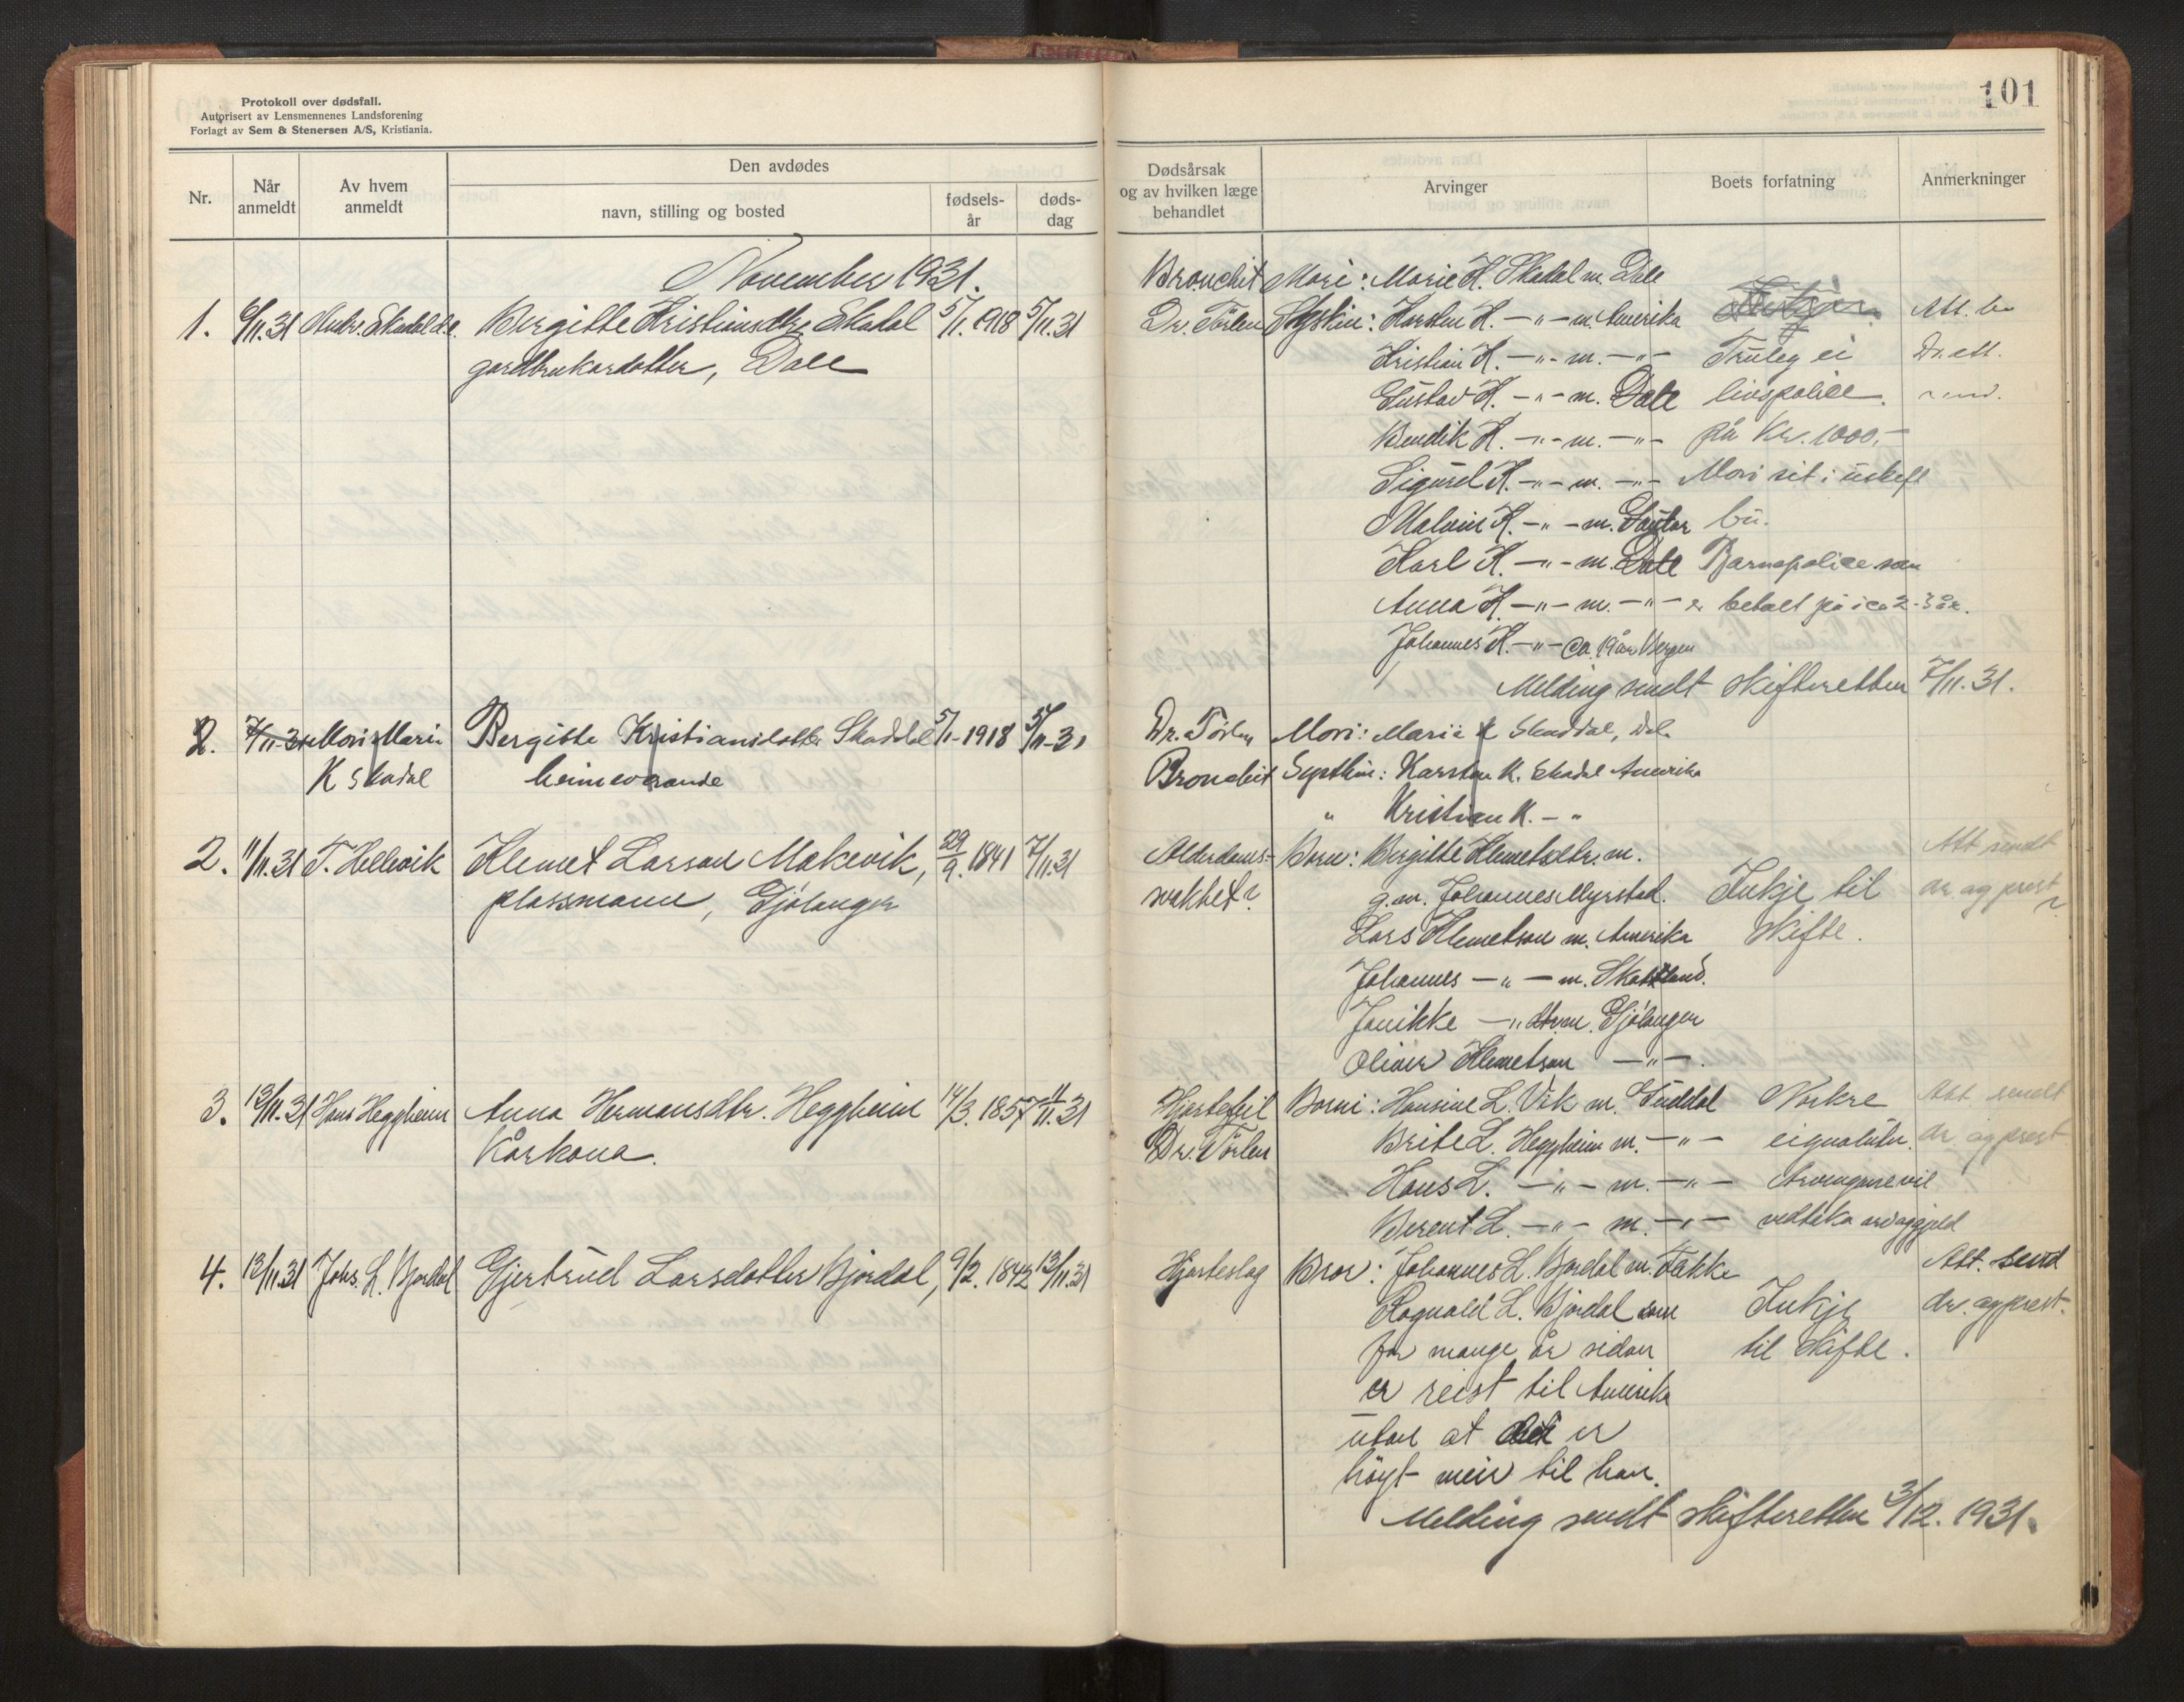 Protokoll over dødsfall.
Autorisert av Lensmennenes Landsforening
Forlagt av Sem & Stenersen A/S, Kristiania.
101
Nr.
Når anmeldt
Av hvem anmeldt
Den avdødes
navn, stilling og bosted
fødsels-år
døds-dag
Dødsårsak og av hvilken læge behandlet
Arvinger
Boets forfatning
Anmerkninger
November 1931.
1. 6/11.31 Andr. Skadal d.e. Bergitte Kristiansdtr. Skadal 5/1.1918 5/11.31
gardbrukardotter, Dale
Bronchit Mori: Marie K. Skadal m. Dale
Dr. Tørlen Syskin: Karsten K. —"— m. Amerika
Kristian K. —"— m. —"— Truleg ei Dr. att.
Gustav K. —"— m. Dale livspolice
Bendik K. —"— m. —"— på Kr. 1000,-
Sigurd K. —"— m. —"— Mori sit i uskift
Malvin K. —"— m. bu.
Karl K. —"— m. Dale Barnepolice som
Anna K. —"— m. —"— er betalt på i ca 2-3 år.
Johannes K. —"— ca. 19 år Bergen
Melding sendt skifteretten 7/11.31.
2. 7/11-31 Mori: Marie Bergitte Kristiansdotter Skaddal 5/1-1918 5/11-31
K Skadal heimeverande
Dr. Tørlen Mori: Marie K Skaddal, Dale
Bronchit Systkin: Karsten K. Skadal Amerika
" Kristian K. — "
2. 11/11.31 T. Hellevik Klemet Larson Makevik, 29/9.1841 7/11.31
plassmann, Gjølanger
Alderdoms- Born: Bergitte Klemetsdtr. m. Att sendt
svakhet? g.m. Johannes Myrstad. Inkje til dr. og prest
Lars Klemetson m. Amerika skifte.
Johannes —"— m.
Janikke —"— dtr. m. Gjølanger
Oliver Klemetson —"—.
3. 13/11.31 Hans Heggheim Anna Hermansdtr. Heggheim 14/3.1857 11/11.31
Kårkona.
Hjartefeil Borni: Hansine L. Vik m. Guddal Nokre Att sendt
Dr. Tørlen Brite L. Heggheim m. —"— eignaluter. dr. og prest
Hans L. —"— m. —"— Arvingane vil
Berent L. —"— m. —"— vedtaka arv og gjeld
4. 13/11.31 Johs. L. Bjordal Gjertrud Larsdotter Bjordal, 9/2.1842 13/11.31
Hjarteslag Bror: Johannes L. Bjordal m. Takke Att. send
Ragnvald L. Bjordal som Inkje dr. og prest.
for mange år sidan til skifte.
er reist til Amerika
utan at det er
høyrt meir til han.
Melding sendt skifteretten 3/12.1931.